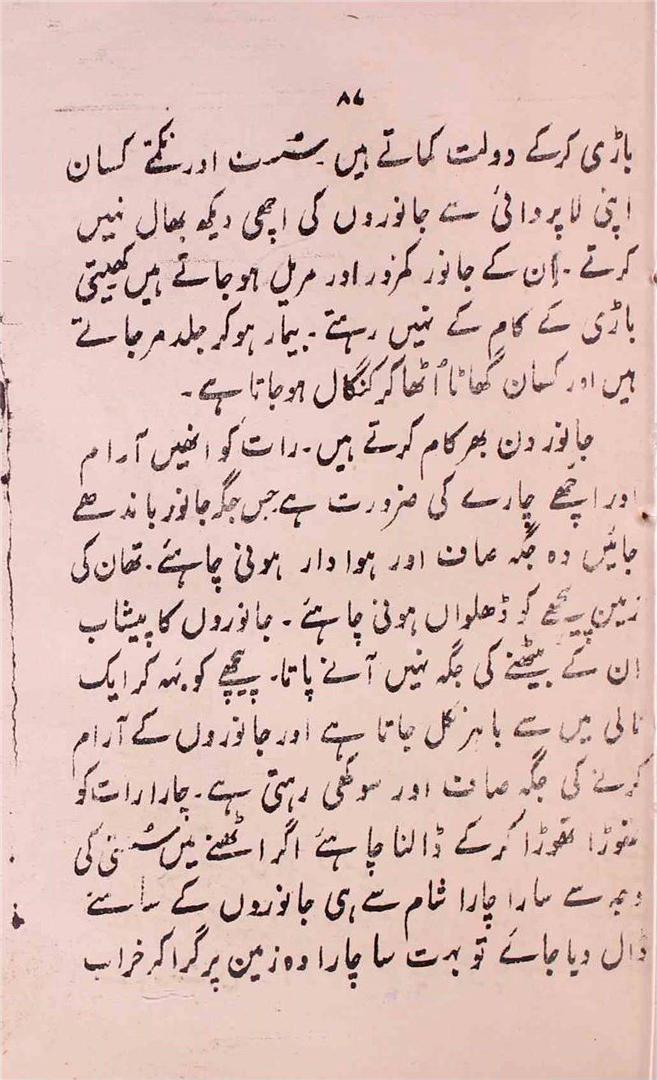 ۸۷
باڑی کرکے دولت کماتے ہیں سُست اور نکمّے کسان
اپنی لاپروائی سے جانوروں کی اچھی دیکھ بھال نہیں
کرتے ۔ اِن کے جانور کمزور اور مریل ہوجاتے ہیں کھیتی
باڑی کے کام کے نہیں رہتے۔ بیمار ہوکر جلد مرجاتے
ہیں اور کسان گھاٹا اُٹھا کر کنگال ہوجاتا ہے۔
جانور دن بھر کام کرتے ہیں۔ رات کو انھیں آرام
اور اچھے چارے کی ضرورت ہے جس جگہ جانور باندھے
جائیں وہ جگہ صاف اور ہوادار ہونی چاہئے۔ تھان کی
زمین پیچھے کو ڈھلواں ہونی چاہئے ۔ جانوروں کا پیشاب
ان کے بیٹھنے کی جگہ نہیں آنے پاتا۔ پیچھے کو بَہ کر ایک
نالی میں سے باہر نکل جاتا ہے اور جانوروں کے آرام
کرنے کی جگہ صاف اور سوکھی رہتی ہے۔ چارا رات کو
تھوڑا تھوڑا کرکے ڈالنا چاہئے اگر اٹھنے میں سُستی کی
وجہ سے سارا چارا شام سے ہی جانوروں کے سامنے
ڈال دیا جائے تو بہت سا چارا وہ زمین پر گرا کر خراب